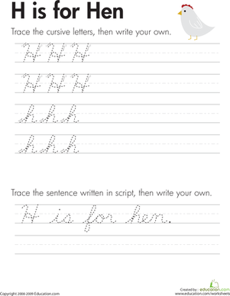 H is for Hen
Trace the cursive letters, then write your own.
H H H
H H H
h h h
h h h
Trace the sentence written in script, then write your own.
H is for hen.
Copyright 2008-2009 Education.com
education.com
www.education.com/worksheets